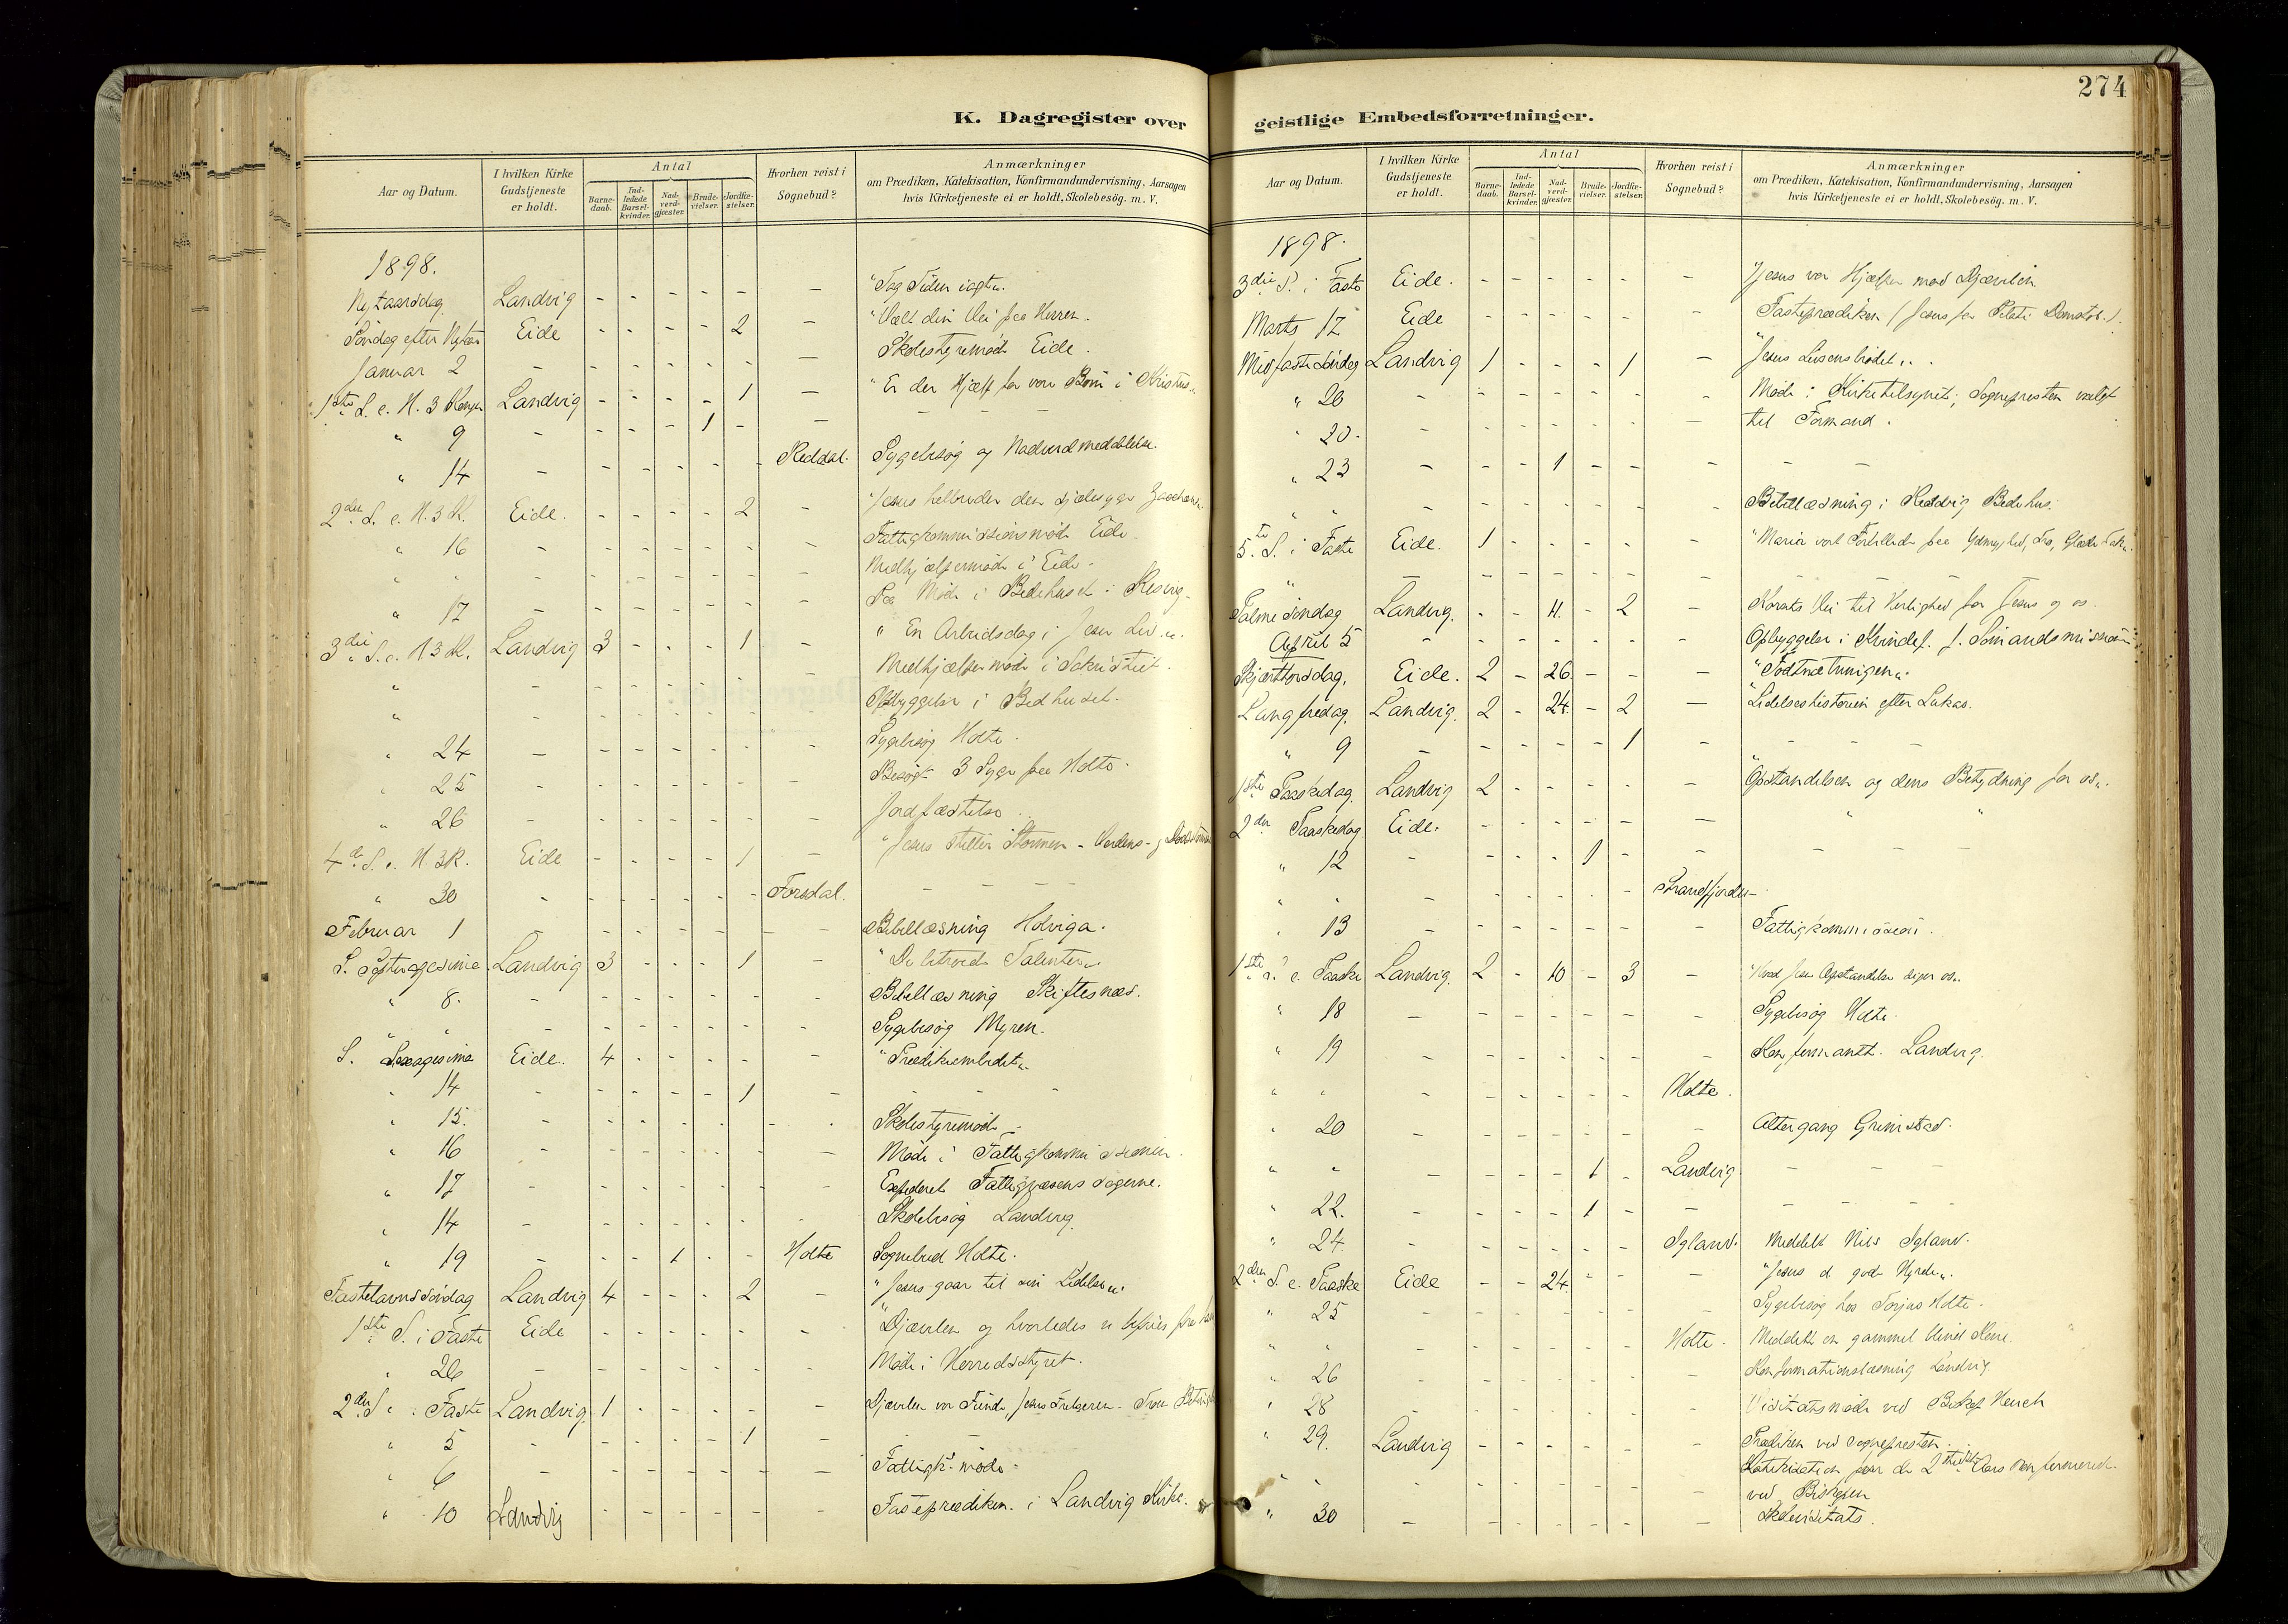 274
K. Dagregister over
Aar og Datum.
I hvilken Kirke Gudstjeneste er holdt.
Antal
Barne-daab.
Ind-ledede Barsel-kvinder.
Nad-verd-gjæster.
Brude-vielser.
Jordfæ-stelser.
Hvorhen reist i Sognebud?
Anmærkninger
om Prædiken, Katekisation, Konfirmandundervisning, Aarsagen
hvis Kirketjeneste ei er holdt, Skolebesög. m. V.
1898.
Nytaarsdag Landvig - - - - - - "Tag Tiden iagt".
Söndag efter Nytaar Eide - - - - 2 - "Vælt din Vei paa Herren.
Januar 2 - - - - - - - Skolestyremöde Eide.
1ste S. e. H. 3 Konger Landvig - - - - 1 - "Er der Hjælp for vore Börn i Kristus"
" 9 - - - - 1 - - - - -
" 14 - - - - - - Reddal. Sygebesög og Nadverdmeddelelse.
2den S. e. H. 3 K. Eide. - - - - 2 - "Jesus helbreder den sjælesyge
" 16 - - - - - - - Fattigkommissionsmöde Eide.
" " - - - - - - - Medhjælpermöde i Eide.
" 17 - - - - - - - Paa Möde i Bedehuset i
3die S. e. H 3 K. Landvig 3 - - - 1 - "En Arbeidsdag i Jesu Liv".
" - - - - - - Medhjælpermöde i Sakristiet.
" - - - - - - Opbyggelse i Bedhuset.
" 24 - - - - - - - Sygebesög Holte.
" 25 - - - - - - - Besögt 3 Syge paa Holte.
" 26 - - - - - - - Jordfæstelse
4de S. e. H. 3 K. Eide - - - - 1 - "Jesus stiller Stormen - Verdens- og
" 30 - - - - - - Forsdal. - - -
Februar 1 - - - - - - - Bibellæsning Holviga.
S. Septuagesima Landvig 3 - - - 1 - "De betroede Talenter"
" 8. - - - - - - - Bibellæsning Skiftesnæs.
" " - - - - - - - Sygebesög Myren.
S. Sexagesima Eide. 4 - - - - - "Prædikeembedet"
" 14 - - - - - 1 - - - -
" 15. - - - - - - - Skolestyremöde
" 16 - - - - - - - Möde i Fattigkommissionen.
" 17 - - - - - - - Expederet Fattigvæsens sagerne.
" 14 - - - - - - - Skolebesög Landvig.
" 19 - - - 1 - - Holte Sognebud Holte.
Fastelavnssöndag Landvig 4 - - - 2 - "Jesus gaar til sin Lidelse".
1ste S. i Faste Eide - - - - - - "Djævlen og hvorledes vi befries fra
" 26 - - - - - - - Möde i Herredsstyret.
2den S. i Faste Landvig. 1 - - - - - Djævlen vor Fiende, Jesus Frelseren.
" 5 - - - - - 1 - -
" 6 - - - - - - - Fattigk.-möde
" 10 Landvig - - - - - - Fasteprædiken. i Landvig Kirke.
geistlige Embedsforretninger.
Aar og Datum.
I hvilken Kirke Gudstjeneste er holdt.
Antal
Barne-daab.
Ind-ledede Barsel-kvinder.
Nad-verd-gjæster.
Brude-vielser.
Jordfæ-stelser.
Hvorhen reist i Sognebud?
Anmærkninger
om Prædiken, Katekisation, Konfirmandundervisning, Aarsagen
hvis Kirketjeneste ei er holdt, Skolebesög. m. V.
1898.
3die S. i Faste Eide. - - - - - - "Jesus vor Hjælper mod Djævlen
Marts 17 Eide - - - - - - Fasteprædiken (Jesus for Pilati Domstol.)
Midfastesöndag Landvig 1 - - - 1 - "Jesus Livsens brödet".
" 20 - - - - - - - Möde i Kirketilsynet; Sognepresten valgt
" 20. - - - - - - - til Formand.
" 23 - - - 1 - - - - -
" " - - - - - - - Bibellæsning i Bedehus.
5te S. i Faste Eide. 1 - - - - - "Maria vort Forbillede paa Ydmyghed, Tro,
" - - - - - - - - -
Palmesöndag Landvig. - - 11. - 2 - Korsets Vei til Herlighed for Jesus og os.
April 5 - - - - - - - Opbyggelse i Kvindef. f. Sömandsmission
Skjærtorsdag, Eide. 2 - 26 - - - "Fodtvætningen".
Langfredag, Landvig. 2 - 24. - 2 - Lidelseshistorien efter Lukas.
" 9 - - - - - 1 - - - -
1ste Paaskedag. Landvig 2 - - - - - "Opstandelsen og dens Betydning for os".
2den Paaskedag Eide. - - - - - - " "
" 12 - - - - 1 - - - - -
" " - - - - - - Strandfjorden -
" 13 - - - - - - - Fattigkommission.
1ste S. e. Paaske Landvig. 2 - 10 - 3 - "Hvad Jesu Opstandelse siger os".
" 18 - - - - - - - Sygebesög Holte.
" 19 - - - - - - - Konfirmantl. Landvig.
" " - - - - - - Holte.
" 20 - - - - - - - Altergang Grimstad.
" " - - - - 1 - Landvig - - -
" 22. - - - - 1 - - - - -
" 24. - - - - - - Igland. Meddelt Nils Igland.
2den S. e. Paaske Eide - - 24. - - - "Jesus d. gode Hyrde".
" 25 - - - - - - - Sygebesög hos Torjus Holte.
" " - - - - - - Holte. Meddelt en gammel blind Kone.
" 26 - - - - - - - Konfirmationslæsning Landvig
" 28 - - - - - - - Visitatsmöde ved Biskop Heuch
" 29. Landvig - - - - - - Prædiken ved Sognepresten.
Katekisation
" " - - - - - - ved Biskopen
" 30 - - - - - - Skolevisitats.